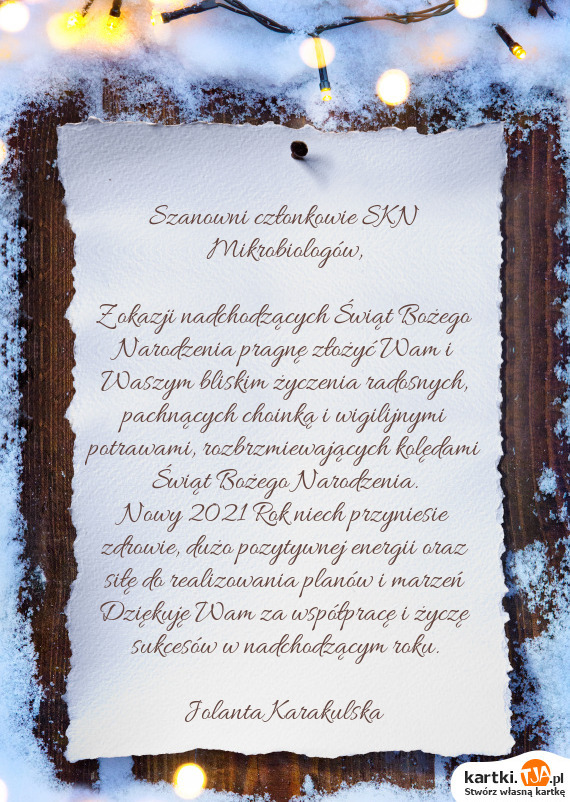 Szanowni członkowie SKN
Mikrobiologów,
Z okazji nadchodzących Świąt Bożego
Narodzenia pragnę złożyć Wam i
Waszym bliskim życzenia radosnych,
pachnących choinką i wigilijnymi
potrawami, rozbrzmiewających kolędami
Świąt Bożego Narodzenia.
Nowy 2021 Rok niech przyniesie
zdrowie, dużo pozytywnej energii oraz
siłę do realizowania planów i marzeń
Dziękuję Wam za współpracę i życzę
sukcesów w nadchodzącym roku.
Jolanta Karakulska
kartki.TJA.pl
Stwórz własną kartkę